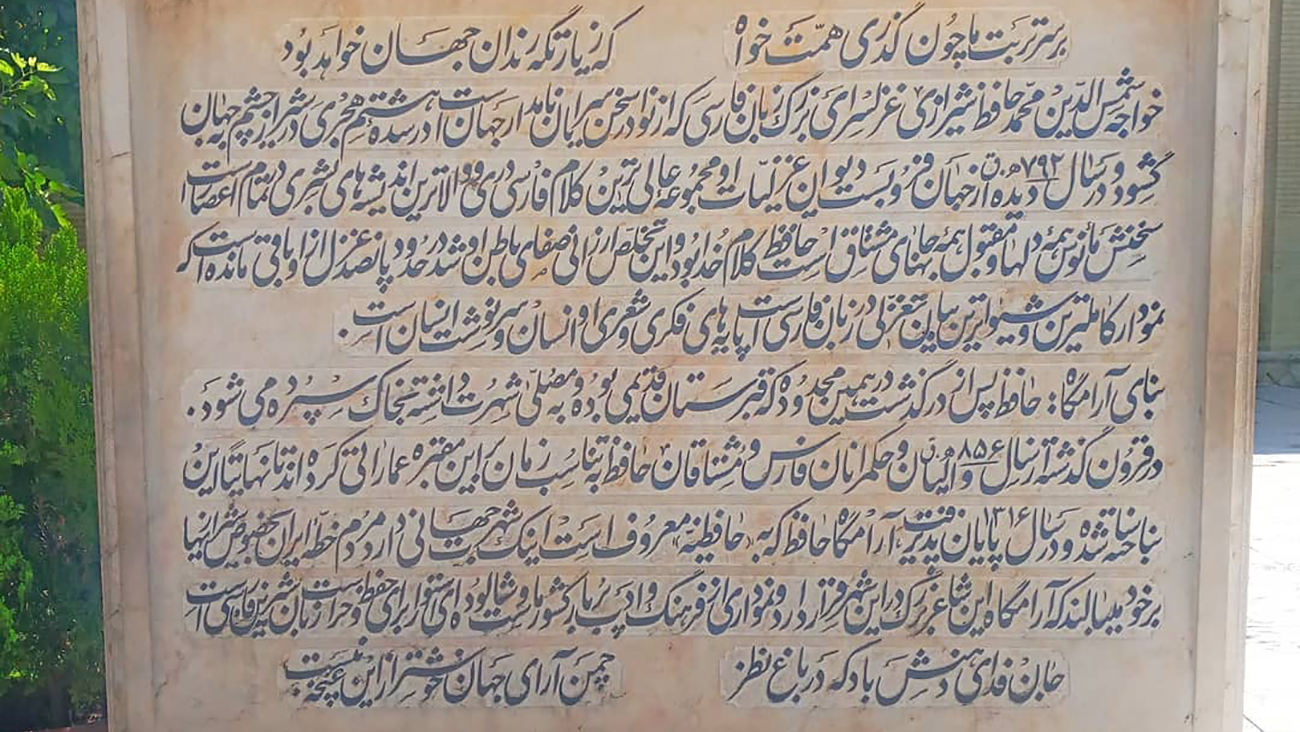 بر سر تربت ما چون گذری همت خواه که زیارتگه رندان جهان خواهد بود
خواجه شمس الدین محمد حافظ شیرازی غزلسرای بزرگ زبان فارسی که از نوادر سخن سرایان نامدار جهان است در سده هشتم هجری در شیراز چشم به جهان
گشود و در سال ۷۹۲ ه.ق دیده از جهان فرو بست دیوان غزلیات او مجموعه عالی ترین کلام فارسی دری و والاترین اندیشه های بشری در تمام اعصار است
سخنش مأنوس همه دلها و مقبول همه جانهای مشتاق است حافظ کلام خدا بود و این تخلص ارزانی صفای باطن او شد در حدود پانصد غزل از او باقی مانده است که
نمودار کاملترین و شیواترین بیان تغزلی در زبان فارسی است پایه های فکری و شعری او انسان و سرنوشت انسان است .
بنای آرامگاه : حافظ پس از درگذشت در همین محدوده که قبرستان قدیمی بوده و به مصلی شهرت داشته بخاک سپرده می شود .
در قرون گذشته از سال ۸۵۶ ه.ق والیان و حکمرانان فارس و مشتاقان حافظ به تناسب زمان بر این مقبره عماراتی کرده اند تا نهایتا این
بنا ساخته شده و در سال ۱۳۱۶ پایان پذیرفت آرامگاه حافظ که به «حافظیه» معروف است اینک شهرت جهانی دارد مردم خطه ایران بخصوص شیرازیها
بر خود میبالند که آرامگاه این شاعر بزرگ در این شهر قرار دارد و نموداری از فرهنگ و ادب پربار کشور ماست و شالوده ای استوار برای حفظ و حراست زبان شیرین فارسی است
جان فدای دهنش باد که در باغ نظر چمن آرای جهان خوشتر از این غنچه نبست